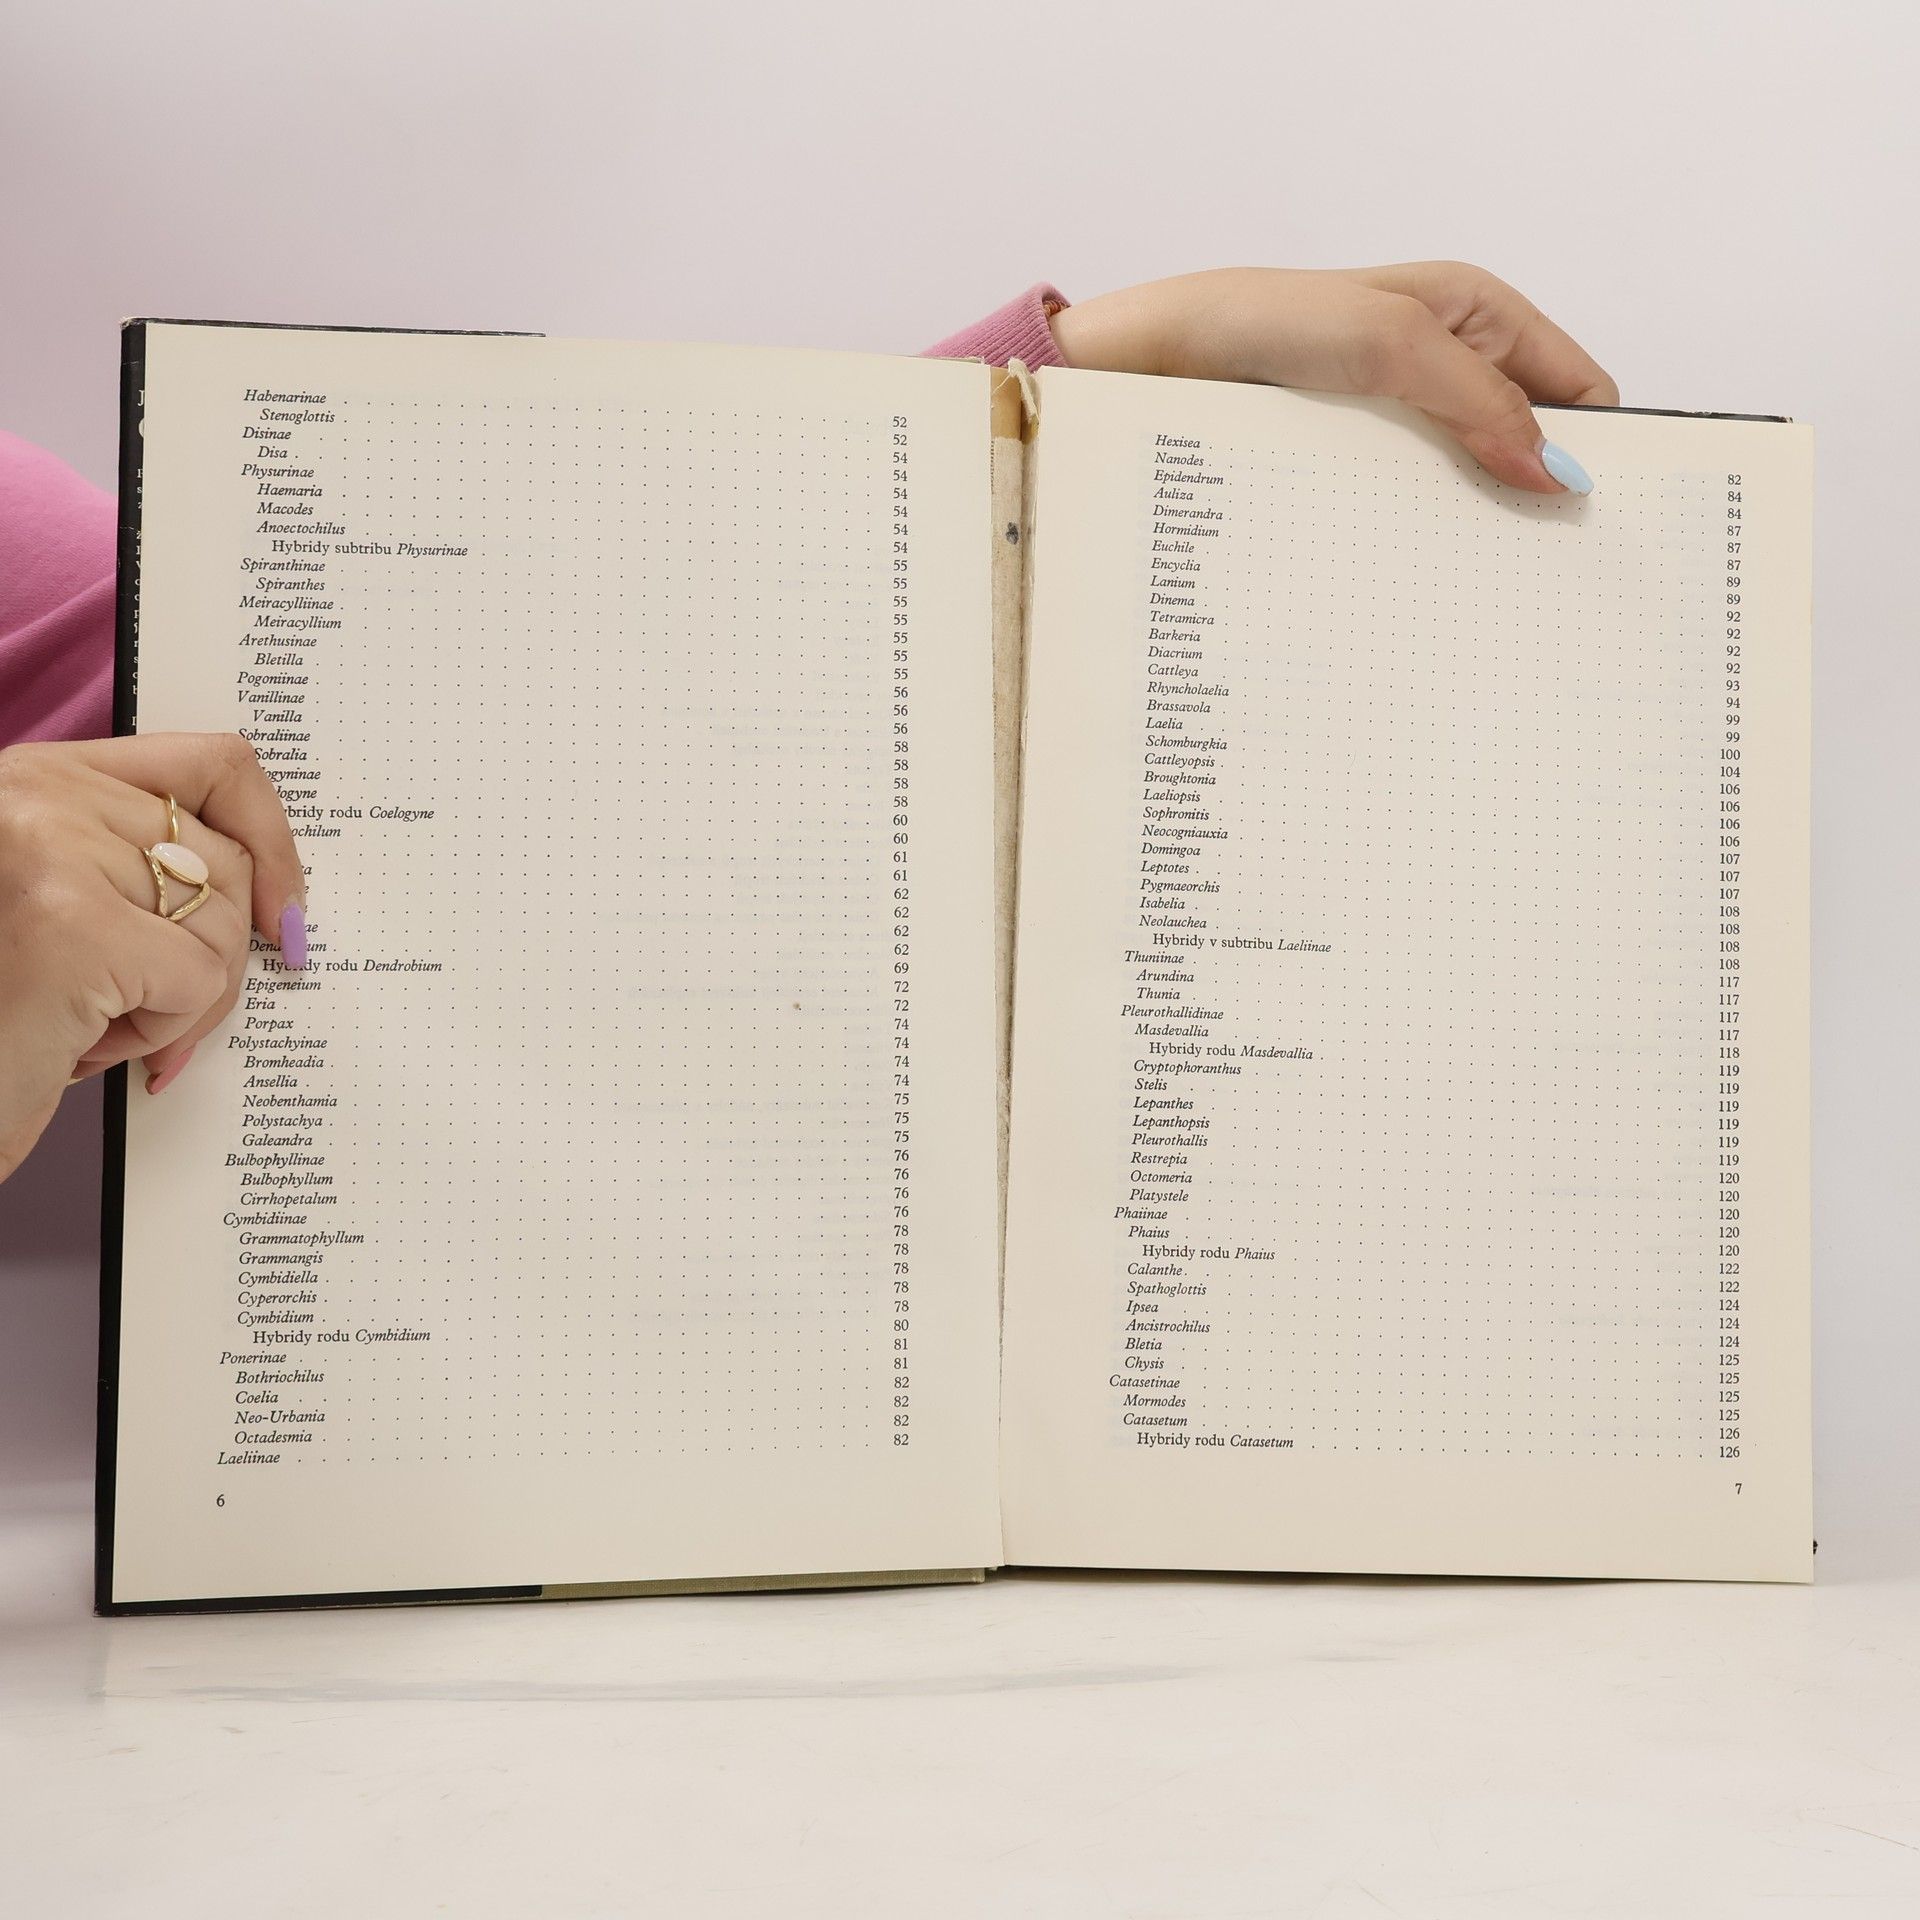 Habenarinae 52
Stenoglottis 52
Disinae 54
Disa 54
Physurinae 54
Haemaria 54
Macodes 54
Anoectochilus 54
Hybridy subtribu Physurinae 55
Spiranthinae 55
Spiranthes 55
Meiracylliinae 55
Meiracyllium 55
Arethusinae 55
Bletilla 55
Pogoniinae 56
Vanillinae 56
Vanilla 56
Sobraliinae 58
Sobralia 58
58
58
rodu Coelogyne 60
60
61
61
62
62
62
62
rodu Dendrobium 69
Epigeneium 72
Eria 72
Porpax 74
Polystachyinae 74
Bromheadia 74
Ansellia 74
Neobenthamia 75
Polystachya 75
Galeandra 75
Bulbophyllinae 76
Bulbophyllum 76
Cirrhopetalum 76
Cymbidiinae 76
Grammatophyllum 78
Grammangis 78
Cymbidiella 78
Cyperorchis 78
Cymbidium 78
Hybridy rodu Cymbidium 80
Ponerinae 81
Bothriochilus 81
Coelia 82
Neo-Urbania 82
Octadesmia 82
Laeliinae 82
6
Hexisea 82
Nanodes 84
Epidendrum 84
Auliza 87
Dimerandra 87
Hormidium 87
Euchile 89
Encyclia 89
Lanium 92
Dinema 92
Tetramicra 92
Barkeria 92
Diacrium 93
Cattleya 94
Rhyncholaelia 99
Brassavola 99
Laelia 100
Schomburgkia 104
Cattleyopsis 106
Broughtonia 106
Laeliopsis 106
Sophronitis 106
Neocogniauxia 107
Domingoa 107
Leptotes 107
Pygmaeorchis 108
Isabelia 108
Neolauchea 108
Hybridy v subtribu Laeliinae 108
Thuniinae 117
Arundina 117
Thunia 117
Pleurothallidinae 117
Masdevallia 118
Hybridy rodu Masdevallia 119
Cryptophoranthus 119
Stelis 119
Lepanthes 119
Lepanthopsis 119
Pleurothallis 119
Restrepia 120
Octomeria 120
Platystele 120
Phaiinae 120
Phaius 120
Hybridy rodu Phaius 122
Calanthe 122
Spathoglottis 124
Ipsea 124
Ancistrochilus 124
Bletia 125
Chysis 125
Catasetinae 125
Mormodes 125
Catasetum 126
Hybridy rodu Catasetum 126
7